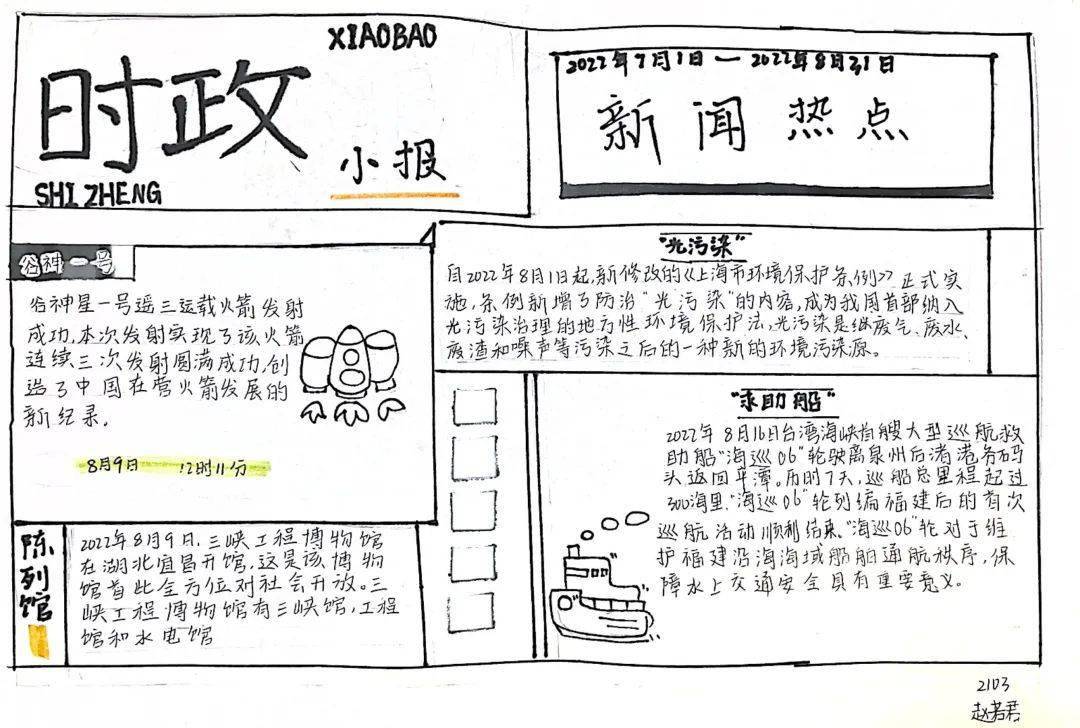 XIAOBAO
时政
小报
SHI ZHENG
2022年7月1日一2022年8月31日
新闻热点
谷神一号
谷神星一号遥三运载火箭发射
成功,本次发射实现了该火箭
连续三次发射圆满成功,创
造了中国在营火箭发展的
新纪录。
8月9日 12时11分
"光污染"
自2022年8月1日起,新修改的《上海市环境保护条例》正式实
施,条例新增了防治"光污染"的内容,成为我国首部纳入
光污染治理的地方性环境保护法,光污染是继废气、废水、
废渣和噪声等污染之后的一种新的环境污染源。
"求助船"
2022年8月16日台湾海峡首艘大型巡航救
助船"海巡06"轮驶离泉州后渚港务码
头返回平潭。历时7天,巡船总里程起过
300海里."海巡06"轮列编福建后的首次
巡航活动顺利结束."海巡06"轮对于维
护福建沿海海域船舶通航秩序,保
障水上交通安全具有重要意义。
陈列馆
2022年8月9日,三峡工程博物馆
在湖北宜昌开馆,这是该博物
馆首此全方位对社会开放。三
峡工程博物馆有三峡馆,工程
馆和水电馆
2103
赵若君